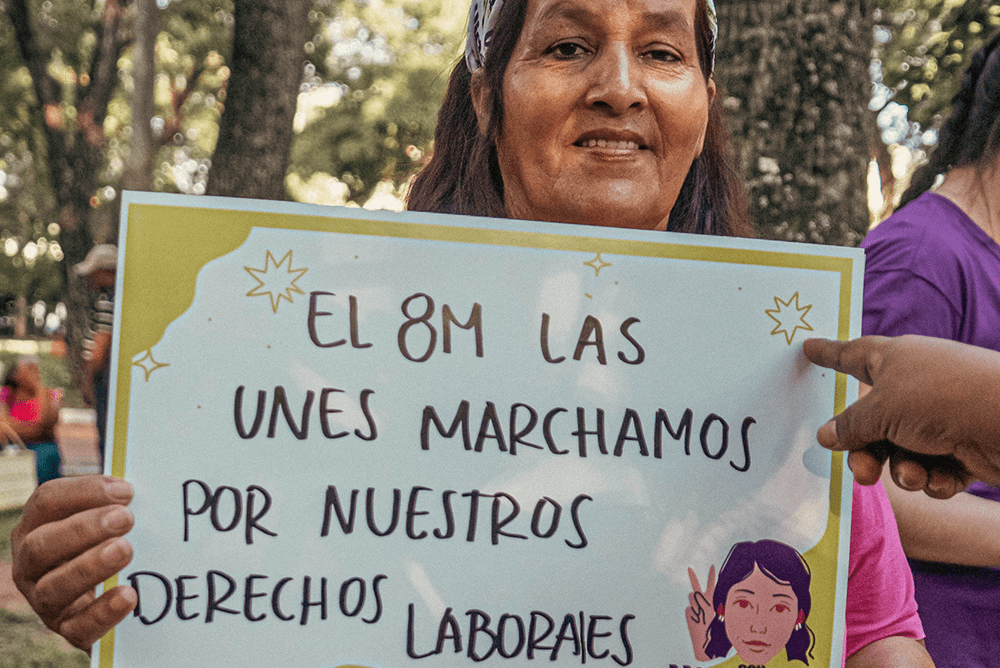 EL 8M LAS
UNES MARCHAMOS
POR NUESTROS
DERECHOS LABORALES